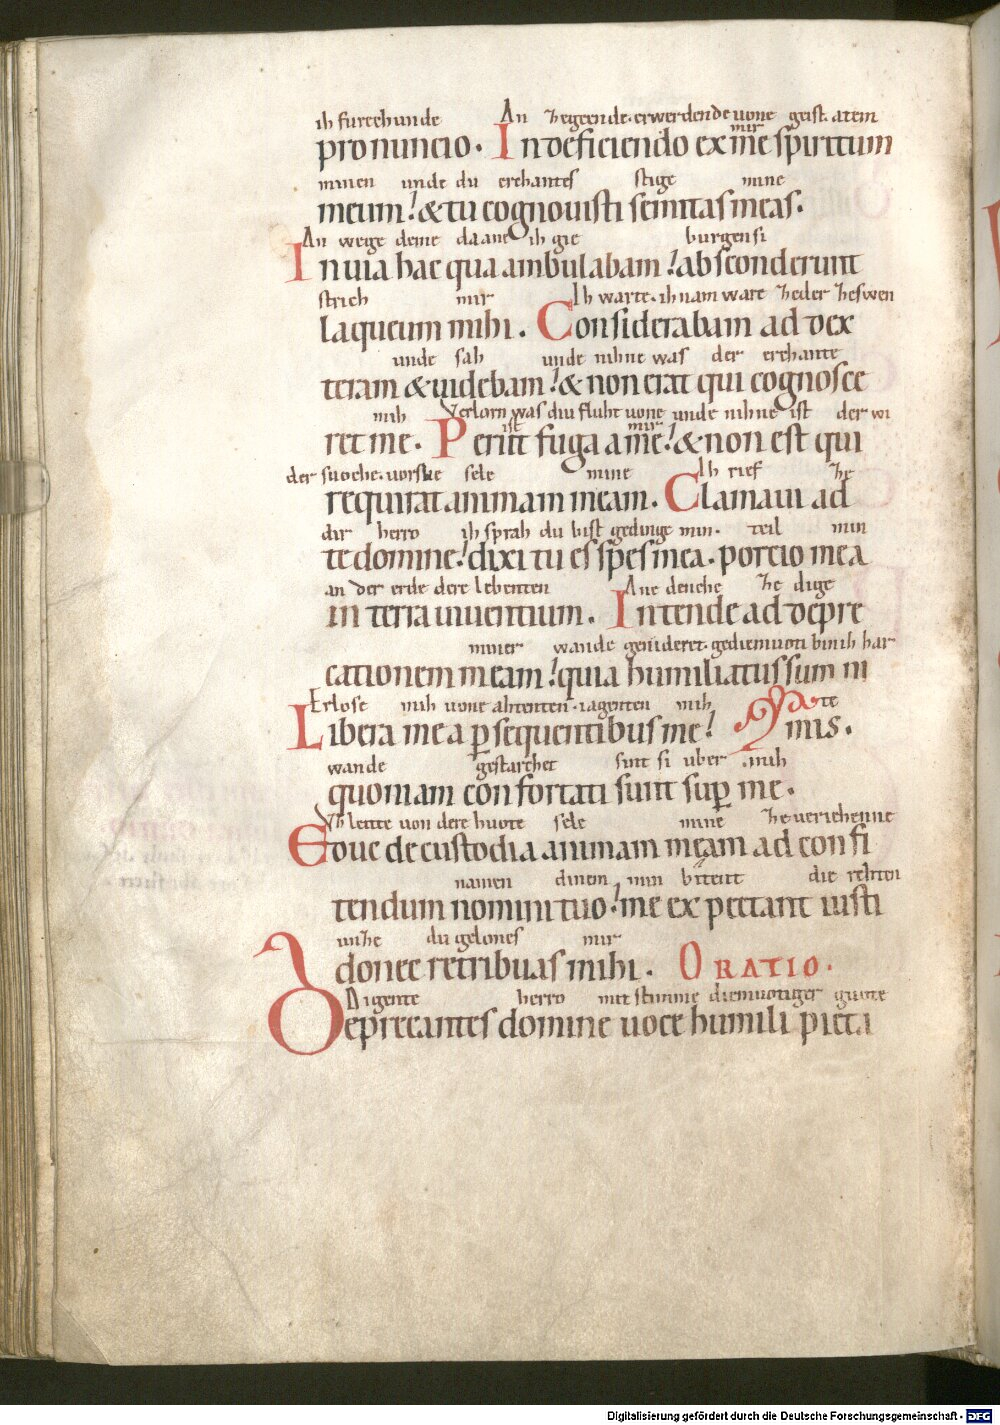 ih furcehunde An zegeende·erwerdende uone geist·atem
mir
pronuncio· In deficiendo ex me spiritum
minen unde du erchantes stige mine
meum! & tu cognouisti semitas meas·
An wege deme da ane ih gie burgen si
In uia hac qua ambulabam! absconderunt
strich mir Ih warte·ih nam ware zeder zeswen
laqueum mihi· Considerabam ad dex
unde sah unde nihne was der erchante
teram & uidebam! & non erat qui cognosce
mih Verlorn was diu fluht uone unde nihne ist der wi
ist mir
ret me· Periit fuga a me! & non est qui
der suoche·uorske sele mine Ih rief ze
requirat animam meam· Clamaui ad
dir herro ih sprah du bist gedinge min· teil min
te domine! dixi tu es spes mea·portio mea
an der erde dere lebenten Ane denche ze dige
in terra uiuentium· Intende ad depre
miner wande genideret·gediemuoti bin ih har
cationem meam! quia humiliatus sum ni
Erlose mih uone ahtenten·iagenten mih te
Libera me a persequentibus me! mis·
wande gestarchet sint si uber mih
quoniam confortati sunt super me·
Vz leite uon dere huote sele mine ze veriehenne
Educ de custodia animam meam ad confi
namen dinem min bitent die rehten
tendum nomini tuo! me expectant iusti
unze du gelones mir
donec retribuas mihi· ORATIO·
Digente herro mit stimme diemuotiger guote
Deprecantes domine uoce humili pieta
Digitalisierung gefördert durch die Deutsche Forschungsgemeinschaft - DFG